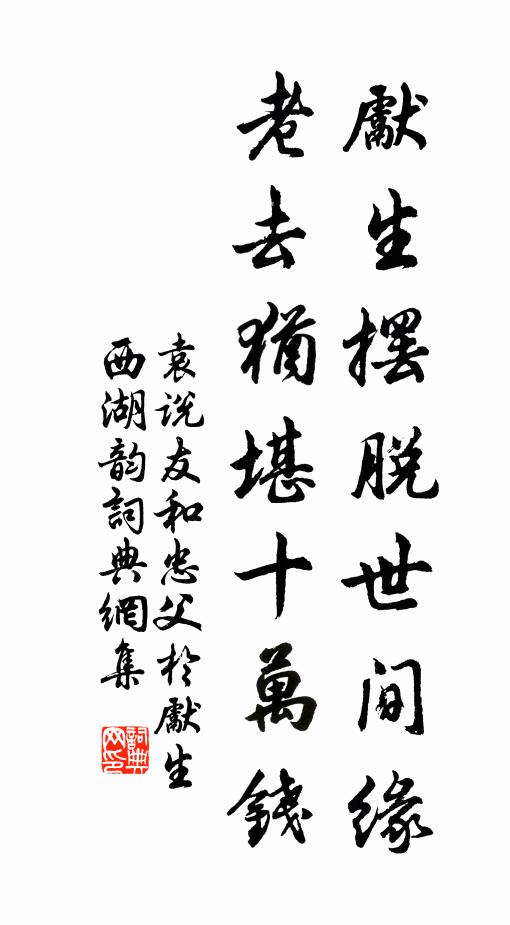 獻生擺脫世間緣
老去猶堪十萬錢
袁說友和忠父於獻生
西湖韵詞典網集
詞典網印